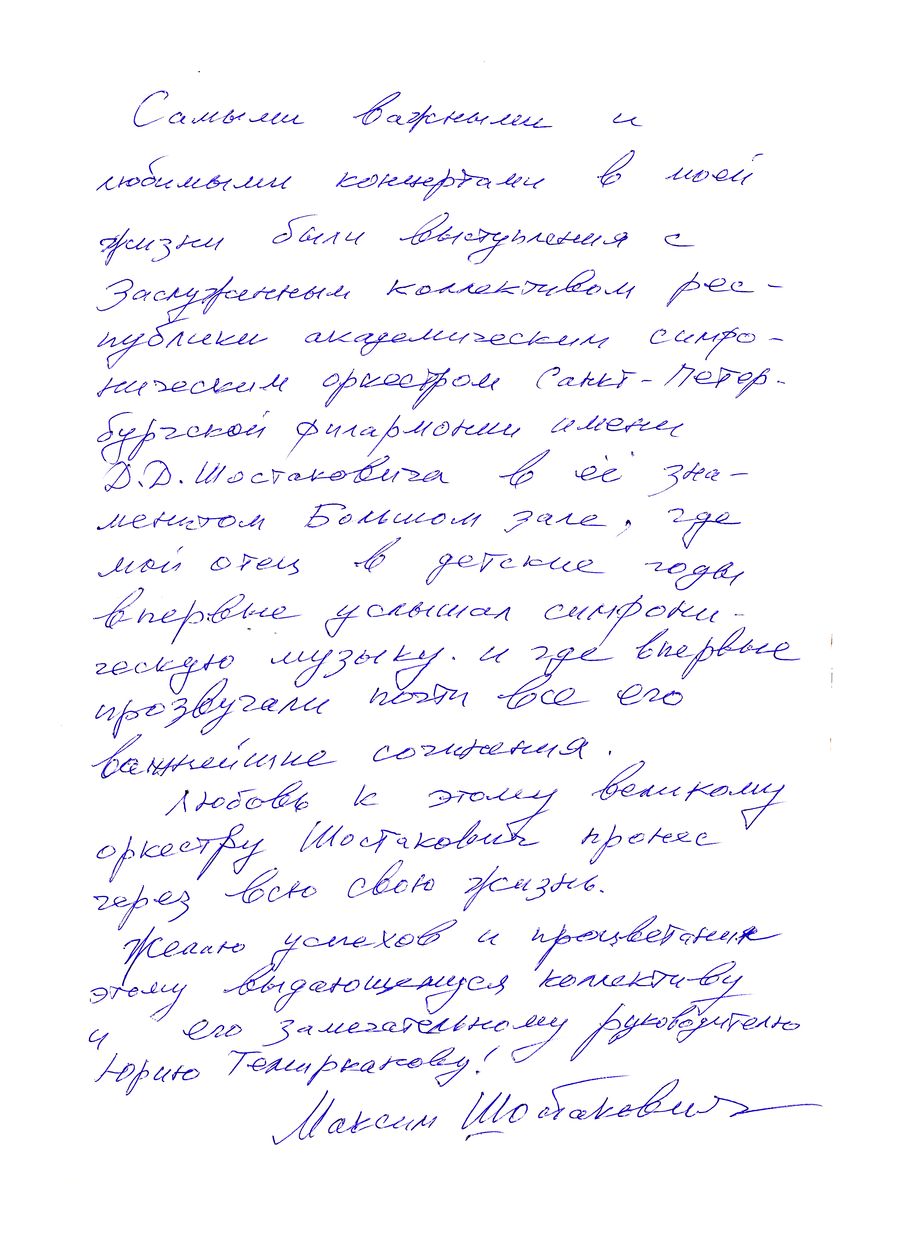 Самыми важными и
любимыми концертами в моей
жизни были выступления с
Заслуженным коллективом рес-
публики академическим симфо-
ническим оркестром Санкт-Петер-
бургской филармонии имени
Д.Д. Шостаковича в её зна-
менитом Большом зале, где
мой отец в детские годы
впервые услышал симфони-
ческую музыку. и где впервые
прозвучали почти все его
важнейшие сочинения.
Любовь к этому великому
оркестру Шостакович пронес
через всю свою жизнь.
Желаю успехов и процветания
этому выдающемуся коллективу
и его замечательному руководителю
Юрию Темирканову!
Максим Шостакович